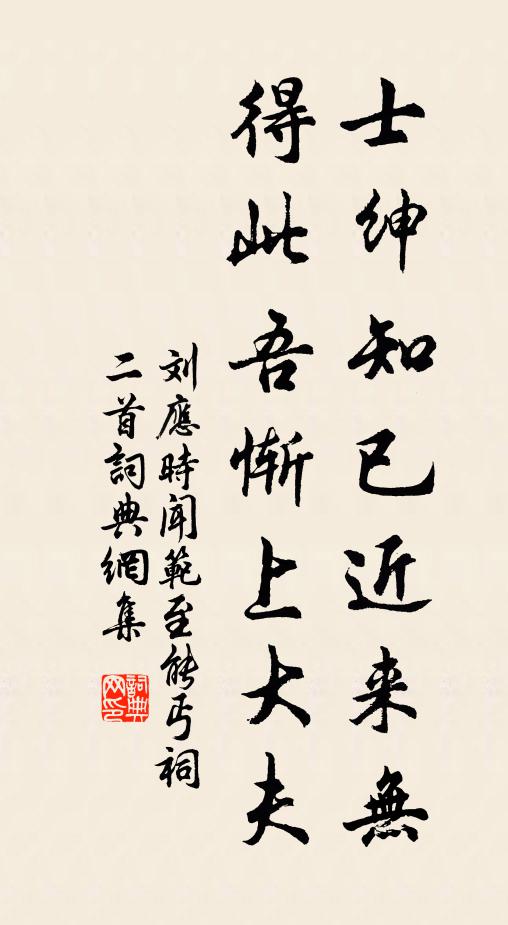 士紳知已近来無
得此吾慚上大夫
刘應時闻範至能丐祠
二首詞典網集
詞典
网印